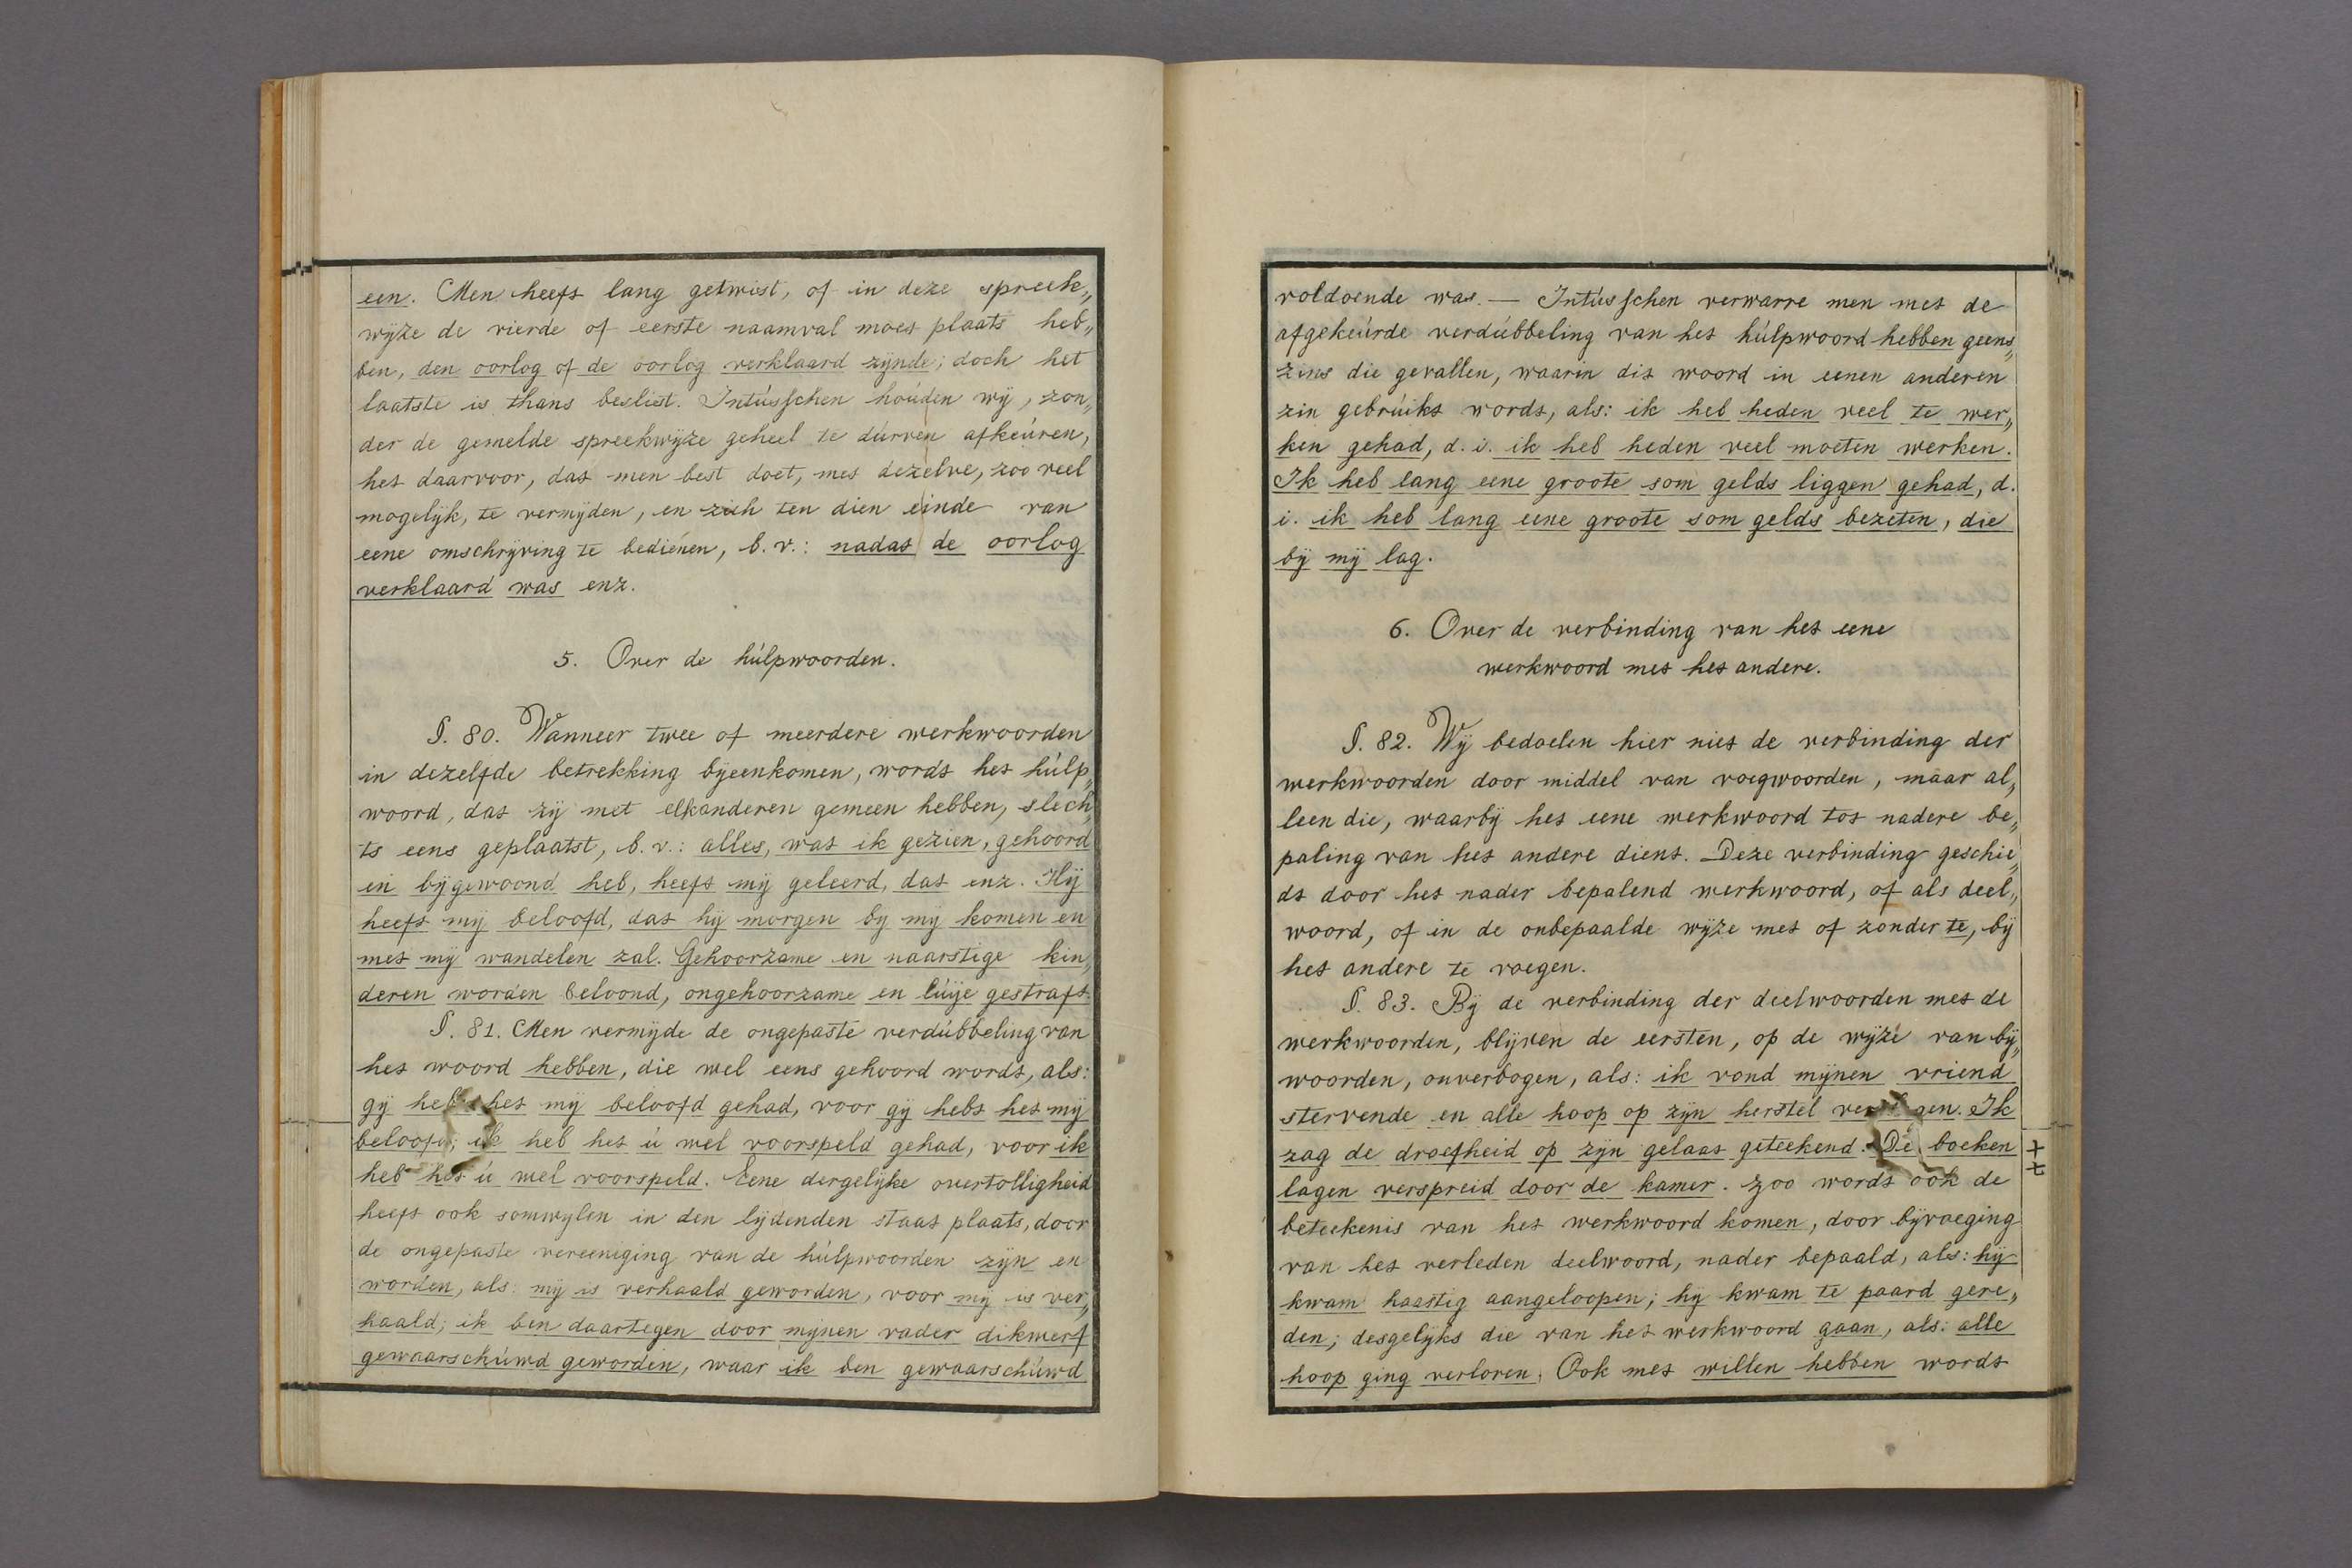 een. Men heeft lang getwist, of in deze spreek„
wijze de vierde of eerste naamval moet plaats heb„
ben, den oorlog of de oorlog verklaard zijnde; doch het
laatste is thans beslist. Intússchen hoúden wij, zon„
der de gemelde spreekwijze geheel te dúrven afkeúren,
het daarvoor, dat men best doet, met dezelve, zoo veel
mogelijk, te vermijden, en zich ten dien einde van
eene omschrijving te bedienen, b. v.: nadat de oorlog
verklaard was enz.
5. Over de húlpwoorden.
§. 80. Wanneer twee of meerdere werkwoorden
in dezelfde betrekking bijeenkomen, wordt het húlp„
woord, dat zij met elkanderen gemeen hebben, slech„
ts eens geplaatst, b. v.: alles, wat ik gezien, gehoord
en bijgewoond heb, heeft mij geleerd, dat enz. Hij
heeft mij beloofd, dat hij morgen bij mij komen en
met mij wandelen zal. Gehoorzame en naarstige kin„
deren worden beloond, ongehoorzame en lúije gestraft.
§. 81. Men vermijde de ongepaste verdúbbeling van
het woord hebben, die wel eens gehoord wordt, als:
gij hebt het mij beloofd gehad, voor gij hebt het mij
beloofd; ik heb het ú wel voorspeld gehad, voor ik
heb het ú wel voorspeld. Eene dergelijke overtolligheid
heeft ook somwijlen in den lijdenden staat plaats, door
de ongepaste vereeniging van de húlpwoorden zijn en
worden, als: mij is verhaald geworden, voor mij is ver„
haald; ik ben daartegen door mijnen vader dikwerf
gewaarschúwd geworden, waar ik ben gewaarschúwd
voldoende was. — Intússchen verwarre men met de
afgekeúrde verdúbbeling van het húlpwoord hebben geens„
zins die gevallen, waarin dit woord in eenen anderen
zin gebrúikt wordt, als: ik heb heden veel te wer„
ken gehad, d. i. ik heb heden veel moeten werken.
Ik heb lang eene groote som gelds liggen gehad, d.
i. ik heb lang eene groote som gelds bezeten, die
bij mij lag.
6. Over de verbinding van het eene
werkwoord met het andere.
§. 82. Wij bedoelen hier niet de verbinding der
werkwoorden door middel van voegwoorden, maar al„
leen die, waarbij het eene werkwoord tot nadere be„
paling van het andere dient. Deze verbinding geschie„
dt door het nader bepalend werkwoord, of als deel„
woord, of in de onbepaalde wijze met of zonder te, bij
het andere te voegen.
§. 83. Bij de verbinding der deelwoorden met de
werkwoorden, blijven de eersten, op de wijze van bij„
woorden, onverbogen, als: ik vond mijnen vriend
stervende en alle hoop op zijn herstel vervlogen. Ik
zag de droefheid op zijn gelaat geteekend. De boeken
lagen verspreid door de kamer. Zoo wordt ook de
beteekenis van het werkwoord komen, door bijvoeging
van het verleden deelwoord, nader bepaald, als: hij
kwam haastig aangeloopen; hij kwam te paard gere„
den; desgelijks die van het werkwoord gaan, als: alle
hoop ging verloren. Ook met willen hebben wordt